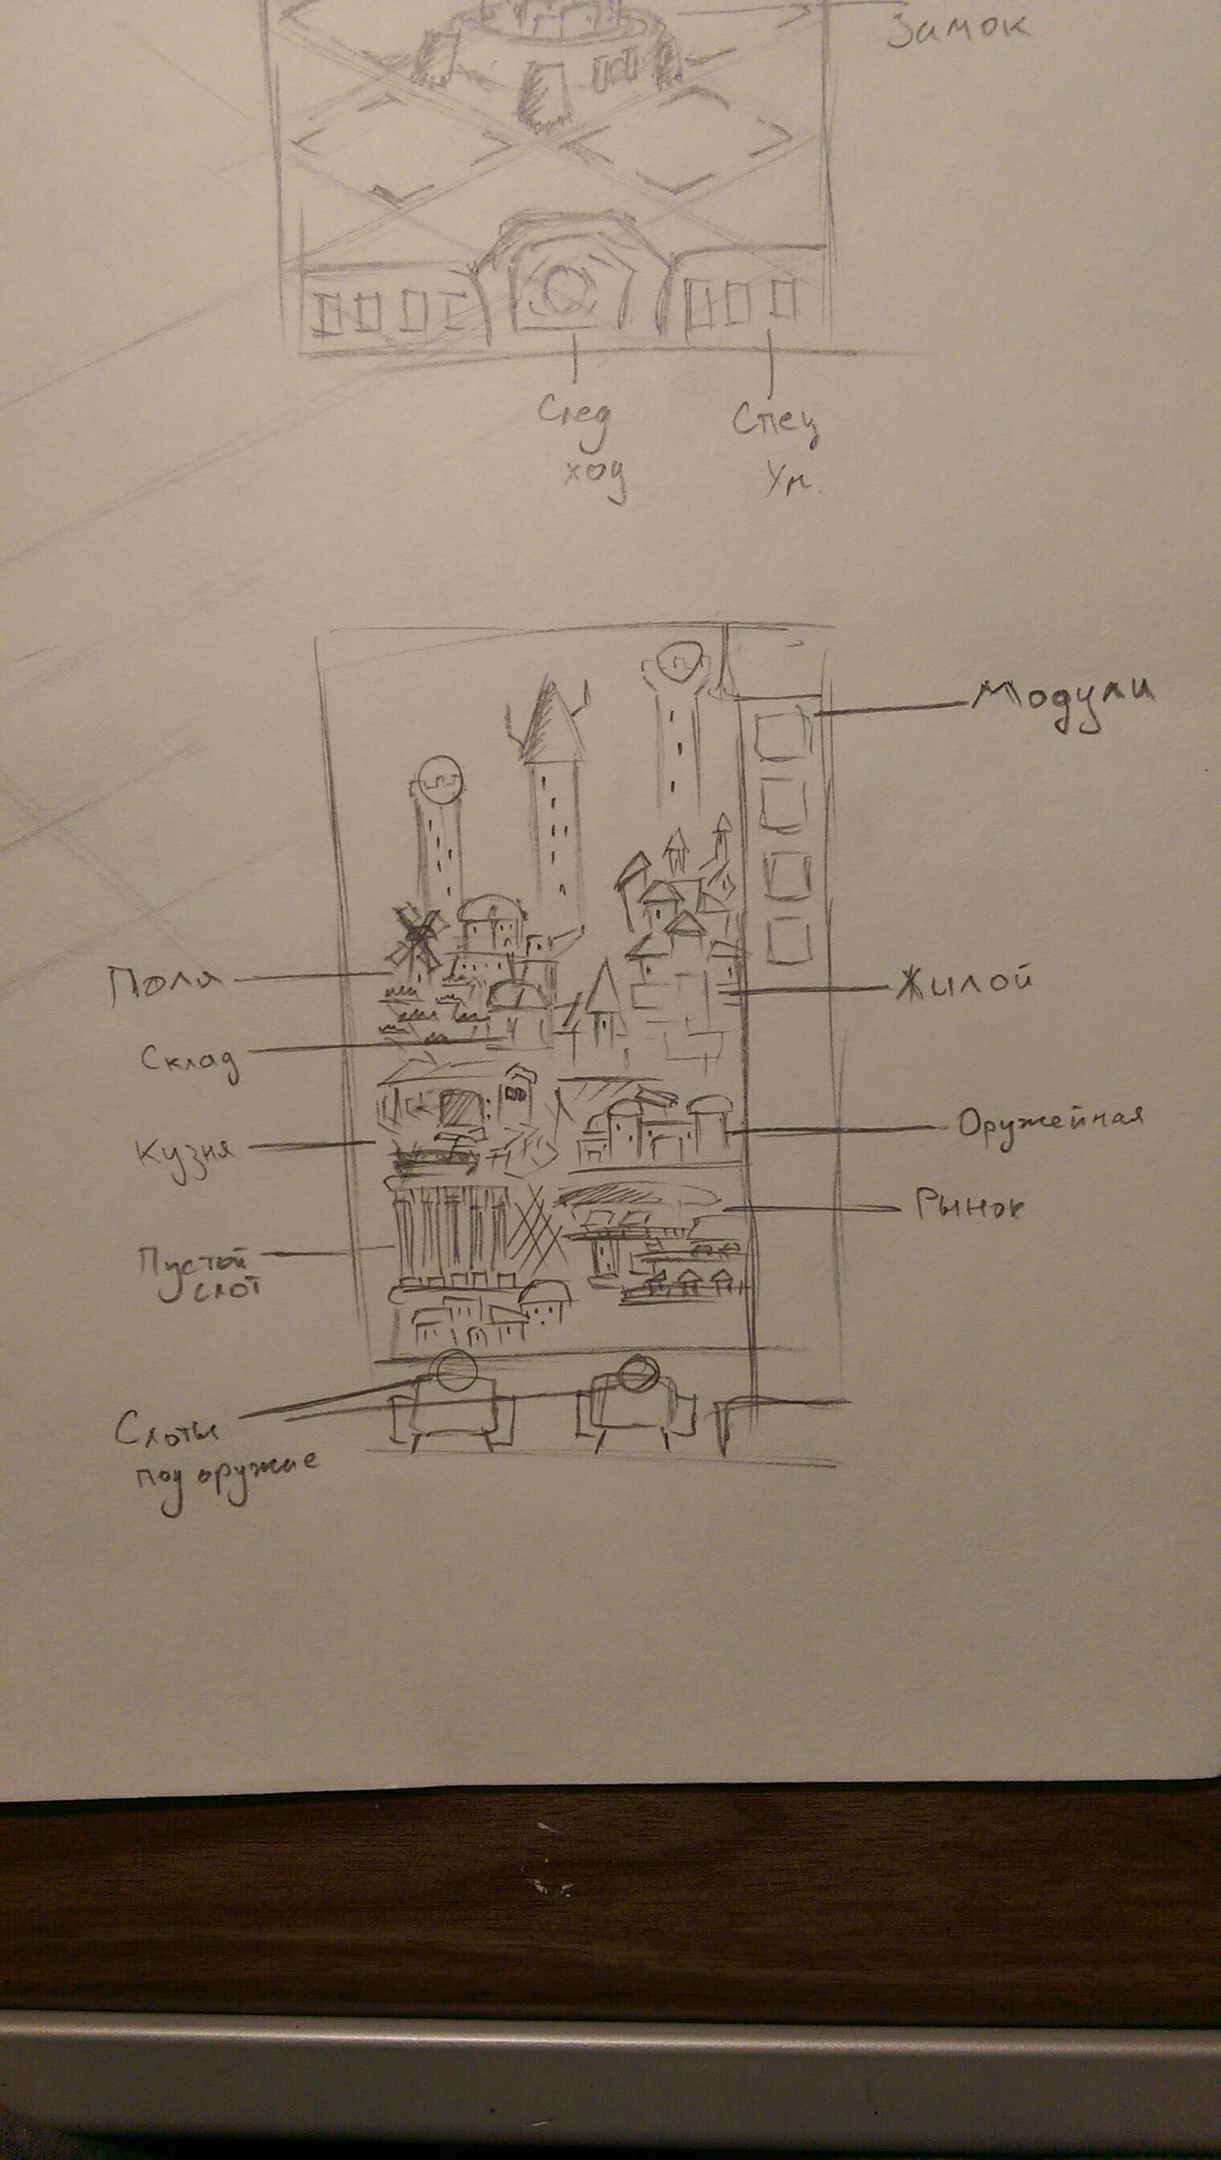 Замок
След
ход
Спец
Ум.
Модули
Поля
Жилой
Склад
Оружейная
Кузня
Рынок
Пустой
слот
Слоты
под оружие